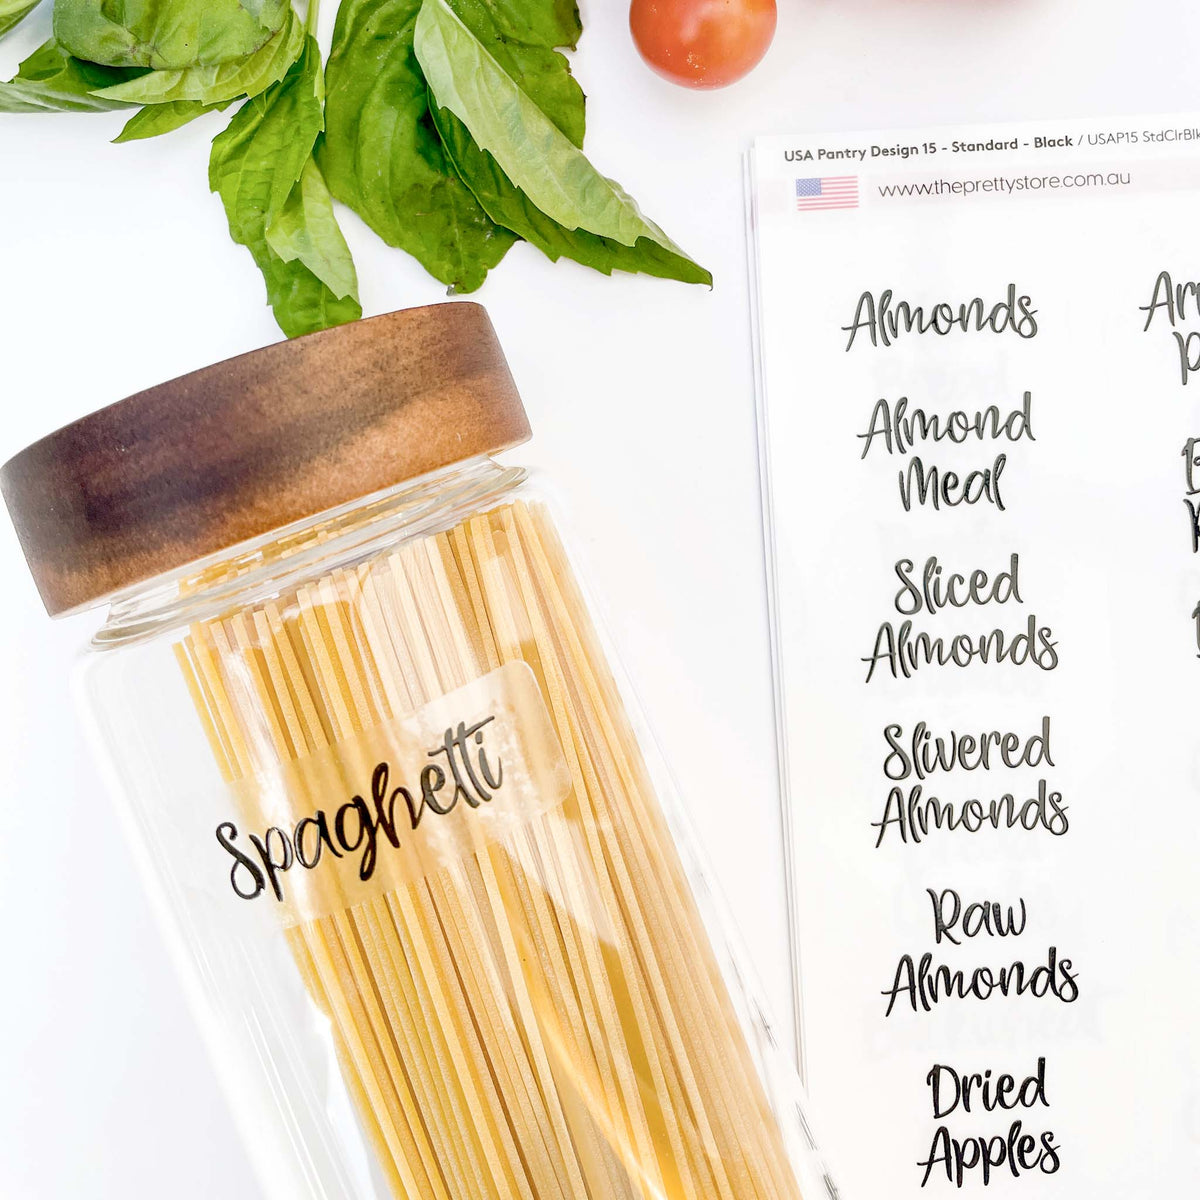 USA Pantry Design 15 - Standard - Black / USAP15 StdClrBlk
www.theprettystore.com.au
Almonds
Almond
Meal
Sliced
Almonds
Slivered
Almonds
Raw
Almonds
Dried
Apples
Spaghetti